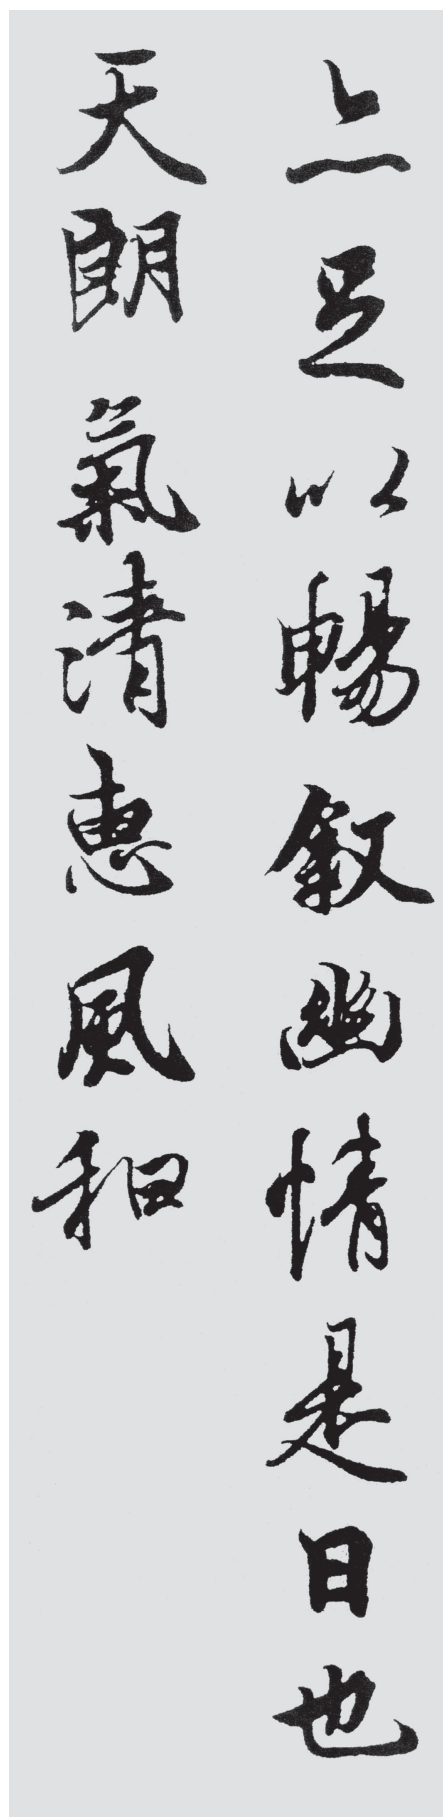 亦足以暢叙幽情是日也
天朗氣清惠風和